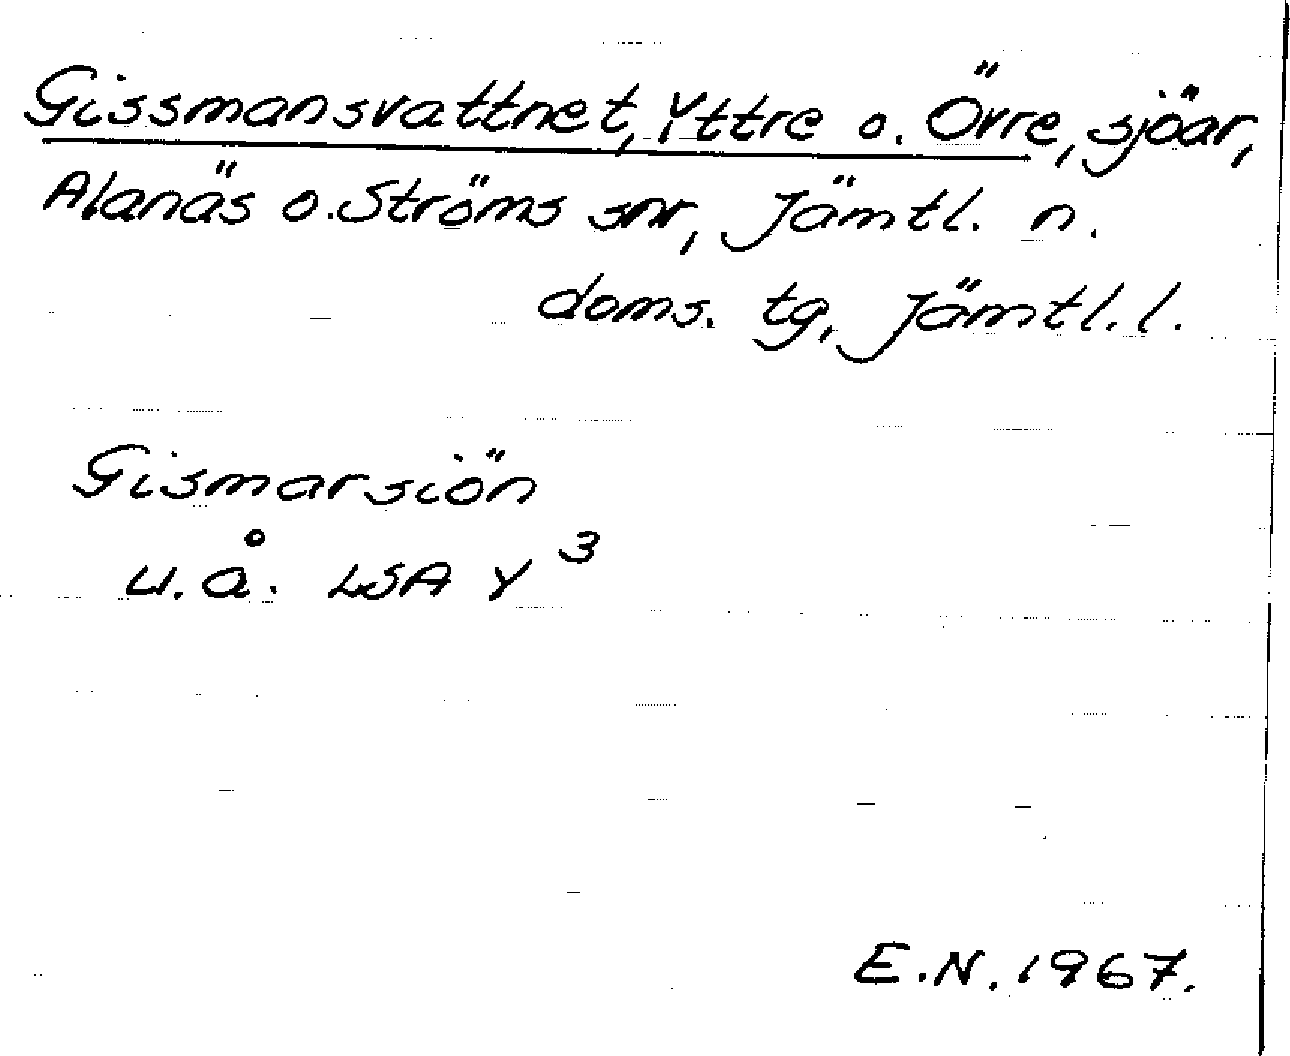 Gissmansvattnet, Yttre o. Övre, sjöar,
Alanäs o. Ströms snr, Jämtl. n.
doms. tg, Jämtl. l.
Gismarsiön
u. å. LSA Y 3
E.N. 1967.